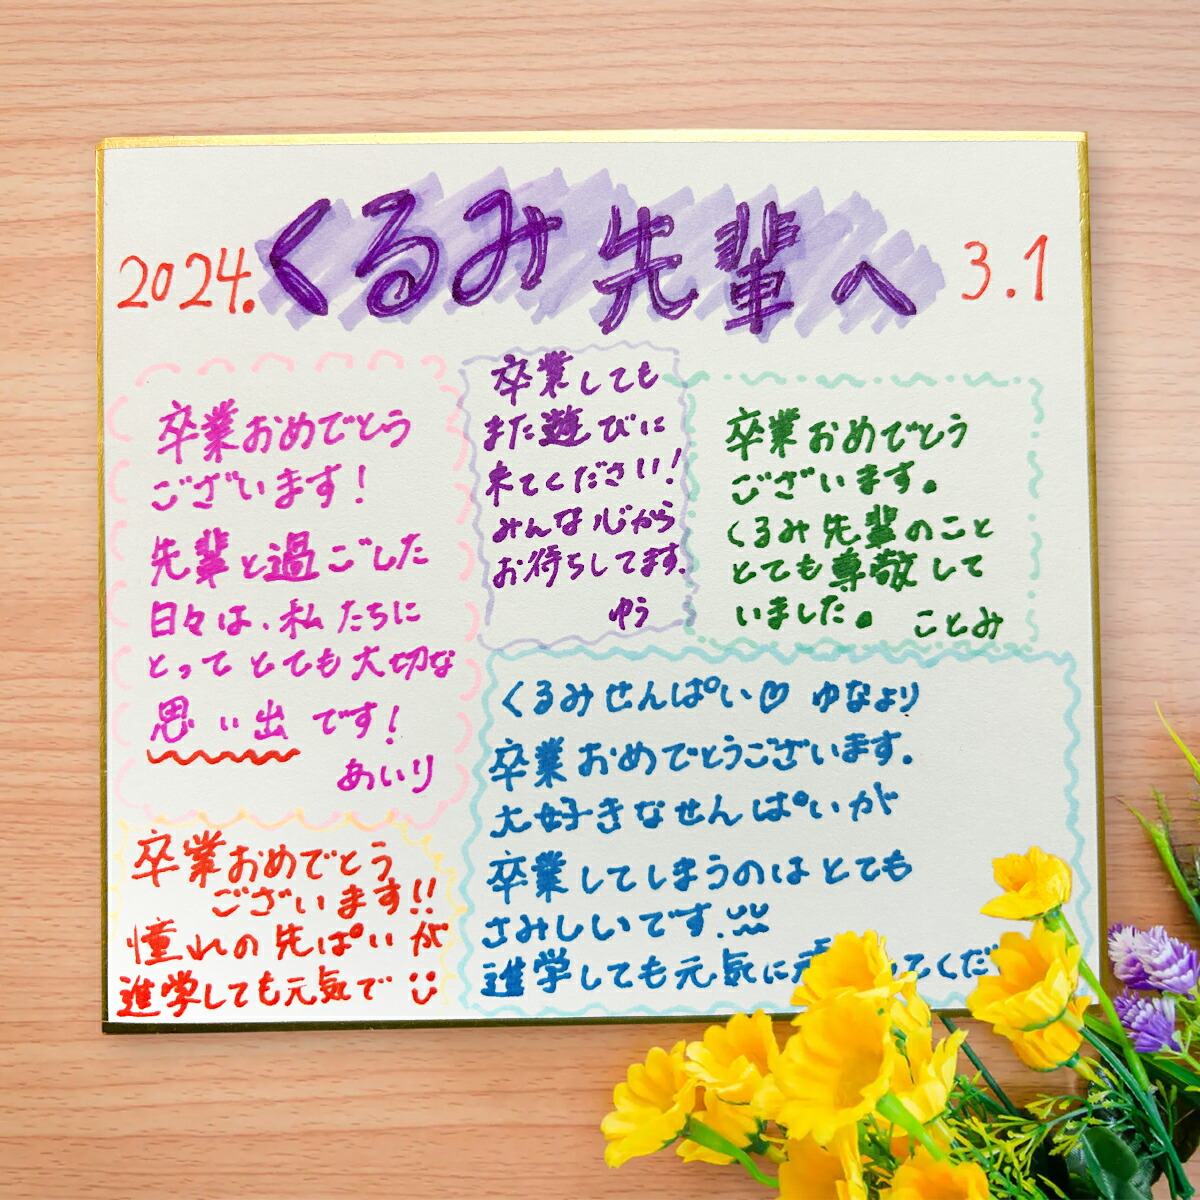 2024. くるみ先輩へ 3.1
卒業おめでとう
ございます!
先輩と過ごした
日々は、私たちに
とってとても大切な
思い出です!
あいり
卒業しても
また遊びに
来てください!
みんな心から
お待ちしてます。
ゆう
卒業おめでとう
ございます。
くるみ先輩のこと
とても尊敬して
いました。 ことみ
くるみせんぱい♡ ゆなより
卒業おめでとうございます。
大好きなせんぱいが
卒業してしまうのはとても
さみしいです。
進学しても元気に てくだ
卒業おめでとう
ございます!!
憧れの先ぱいが
進学しても元気で